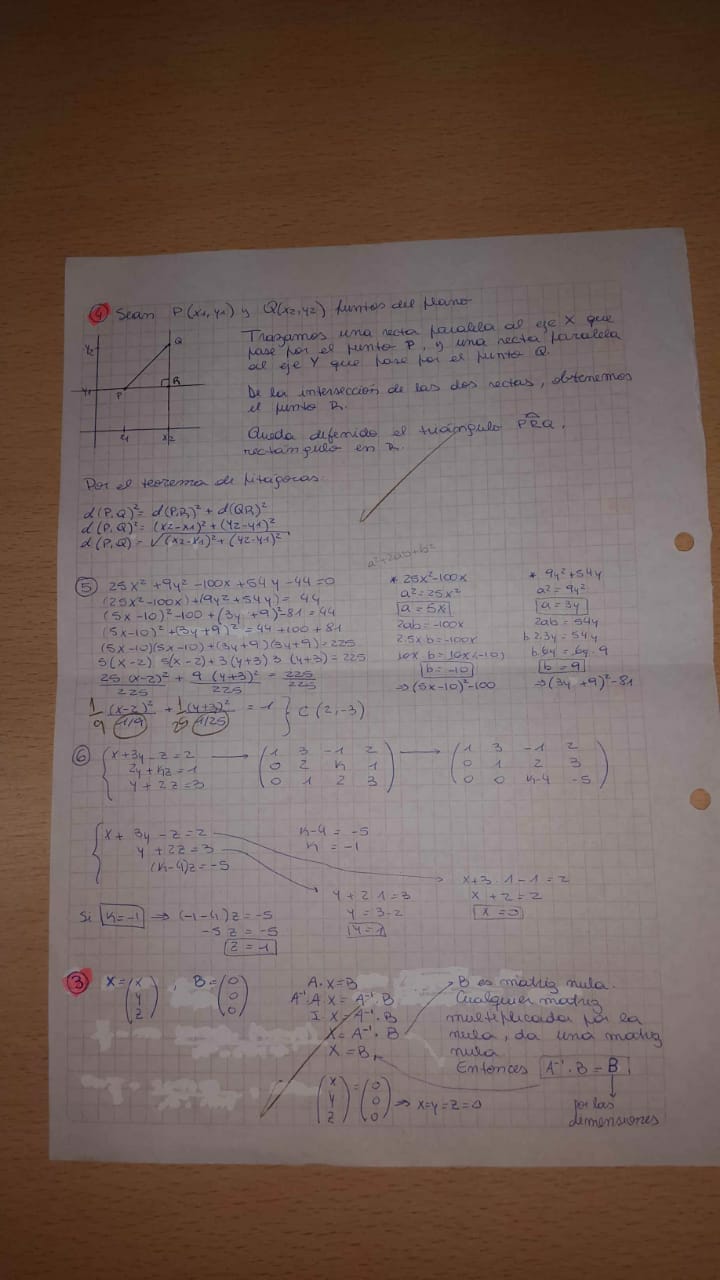 ④ Sean P(x1,y1) y Q(x2,y2) puntos del plano
y2
Q
y1
P
R
x1
x2
Trazamos una recta paralela al eje X que
pase por el punto P, y una recta paralela
al eje Y que pase por el punto Q.
De la intersección de las dos rectas, obtenemos
el punto R.
Queda definido el triángulo PRQ,
rectángulo en R.
Por el teorema de Pitágoras:
d(P,Q)² = d(P,R)² + d(QR)²
d(P,Q)² = (x2-x1)² + (y2-y1)²
d(P,Q) = √(x2-x1)² + (y2-y1)²
a²+2ab+b²
⑤ 25x² + 9y² - 100x + 54y - 44 = 0
(25x²-100x) + (9y²+54y) = 44
(5x-10)² - 100 + (3y+9)² - 81 = 44
(5x-10)² + (3y+9)² = 44 + 100 + 81
(5x-10)(5x-10) + (3y+9)(3y+9) = 225
5(x-2) 5(x-2) + 3(y+3) 3(y+3) = 225
25 (x-2)²/225 + 9 (y+3)²/225 = 225/225
1/9 (x-2)²/(1/9) + 1/25 (y+3)²/(1/25) = 1 } C(2,-3)
* 25x²-100x
a² = 25x²
a = 5x
2ab = -100x
2.5x b = -100x
10x b = 10x (-10)
b = -10
⇒ (5x-10)² - 100
* 9y²+54y
a² = 9y²
a = 3y
2ab = 54y
b 2.3y = 54y
b.6y = 6y . 9
b = 9
⇒ (3y+9)² - 81
⑥ { x + 3y - z = 2
2y + kz = 1
y + 2z = 3
→ ( 1 3 -1 2
0 2 k 1
0 1 2 3 )
→ ( 1 3 -1 2
0 1 2 3
0 0 k-4 -5 )
{ x + 3y - z = 2
y + 2z = 3
(k-4)z = -5
k-4 = -5
k = -1
Si k=-1 ⇒ (-1-4)z = -5
-5z = -5
z = 1
y + 2·1 = 3
y = 3-2
y = 1
x + 3·1 - 1 = 2
x + 2 = 2
x = 0
③ X = (x y z), B = (0 0 0)
A·X = B
A⁻¹·A·X = A⁻¹·B
I·X = A⁻¹·B
X = A⁻¹·B
X = B
(x y z) = (0 0 0) ⇒ x=y=z=0
B es matriz nula.
Cualquier matriz
multiplicada por la
nula, da una matriz
nula
Entonces A⁻¹·B = B
por las
dimensiones